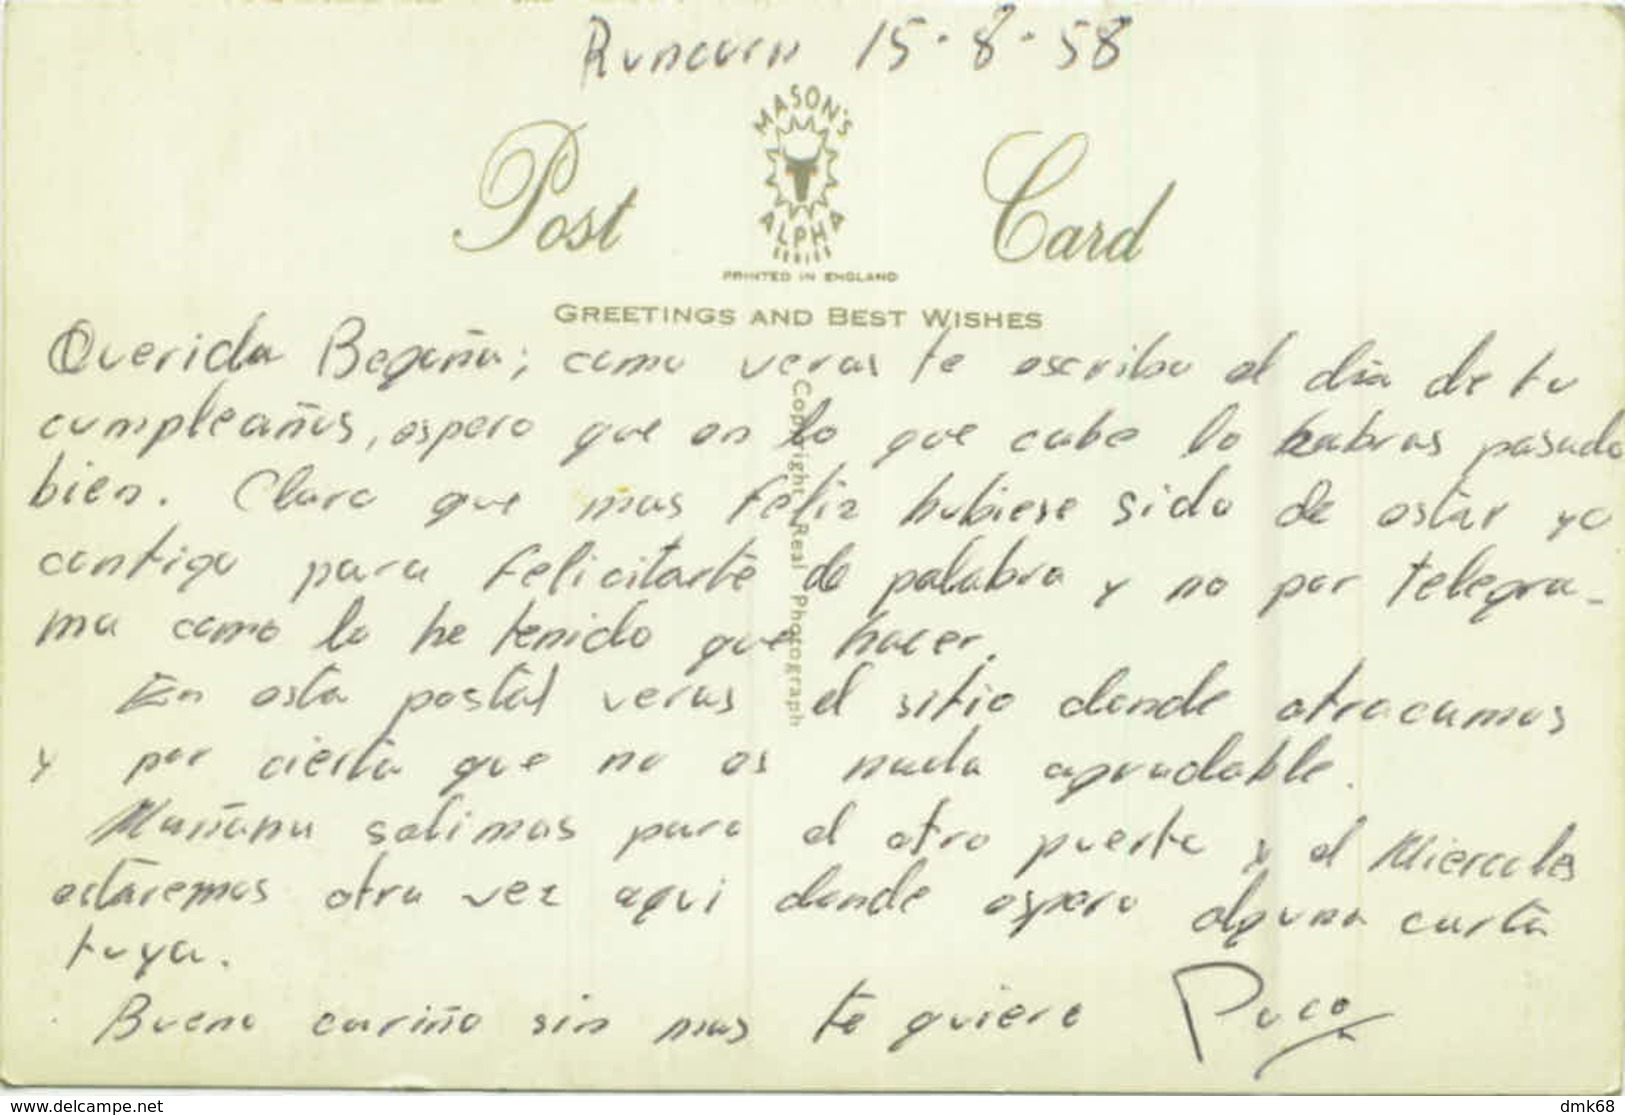 Runcorn 15-8-58
MASON'S
ALPHA
SERIES
Post Card
PRINTED IN ENGLAND
GREETINGS AND BEST WISHES
Querida Begoña; como veras te escribo el dia de tu
cumpleaños, espero que en lo que cabe lo habras pasado
bien. Claro que mas feliz hubiese sido de estar yo
contigo para felicitarte de palabra y no por telegra-
ma como lo he tenido que hacer.
En esta postal veras el sitio donde atracamos
y por cierto que no es nada agradable.
Mañana salimos para el otro puerto y el Miercoles
estaremos otra vez aqui donde espero alguna carta
tuya.
Bueno cariño sin mas te quiere Paco
Copyright Real Photograph
www.delcampe.net
dmk68